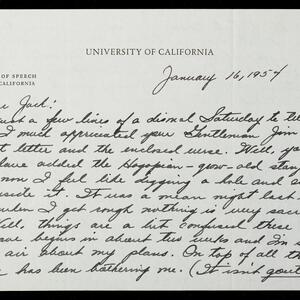 UNIVERSITY OF CALIFORNIA
OF SPEECH
CALIFORNIA
January 16, 1954
Jack:
Just a few lines of a dismal Saturday to te
I much appreciated your Gentleman Jim
t letter and the enclosed verse. Well, yo
have added the Hagopian - grow-old sta
now I feel like digging a hole and
inside it. It was a mean night last
when I get rough nothing is very sacr
ell, things are a bit confused these
begins in about two weeks and I'm
air about my plans. On top of all th
has been bothering me. (It isn't gout